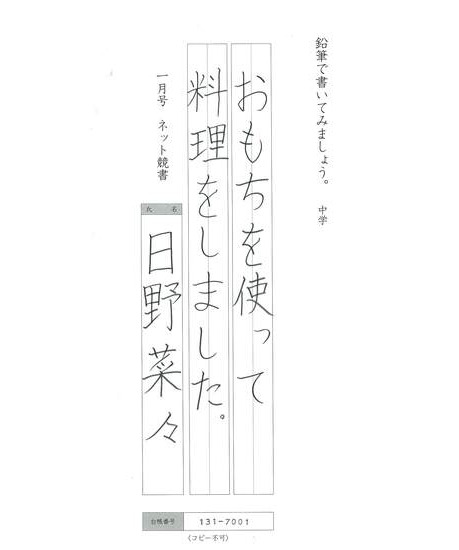 鉛筆で書いてみましょう。 中学
おもちを使って
料理をしました。
一月号 ネット競書
氏名
日野菜々
台帳番号 131-7001
(コピー不可)